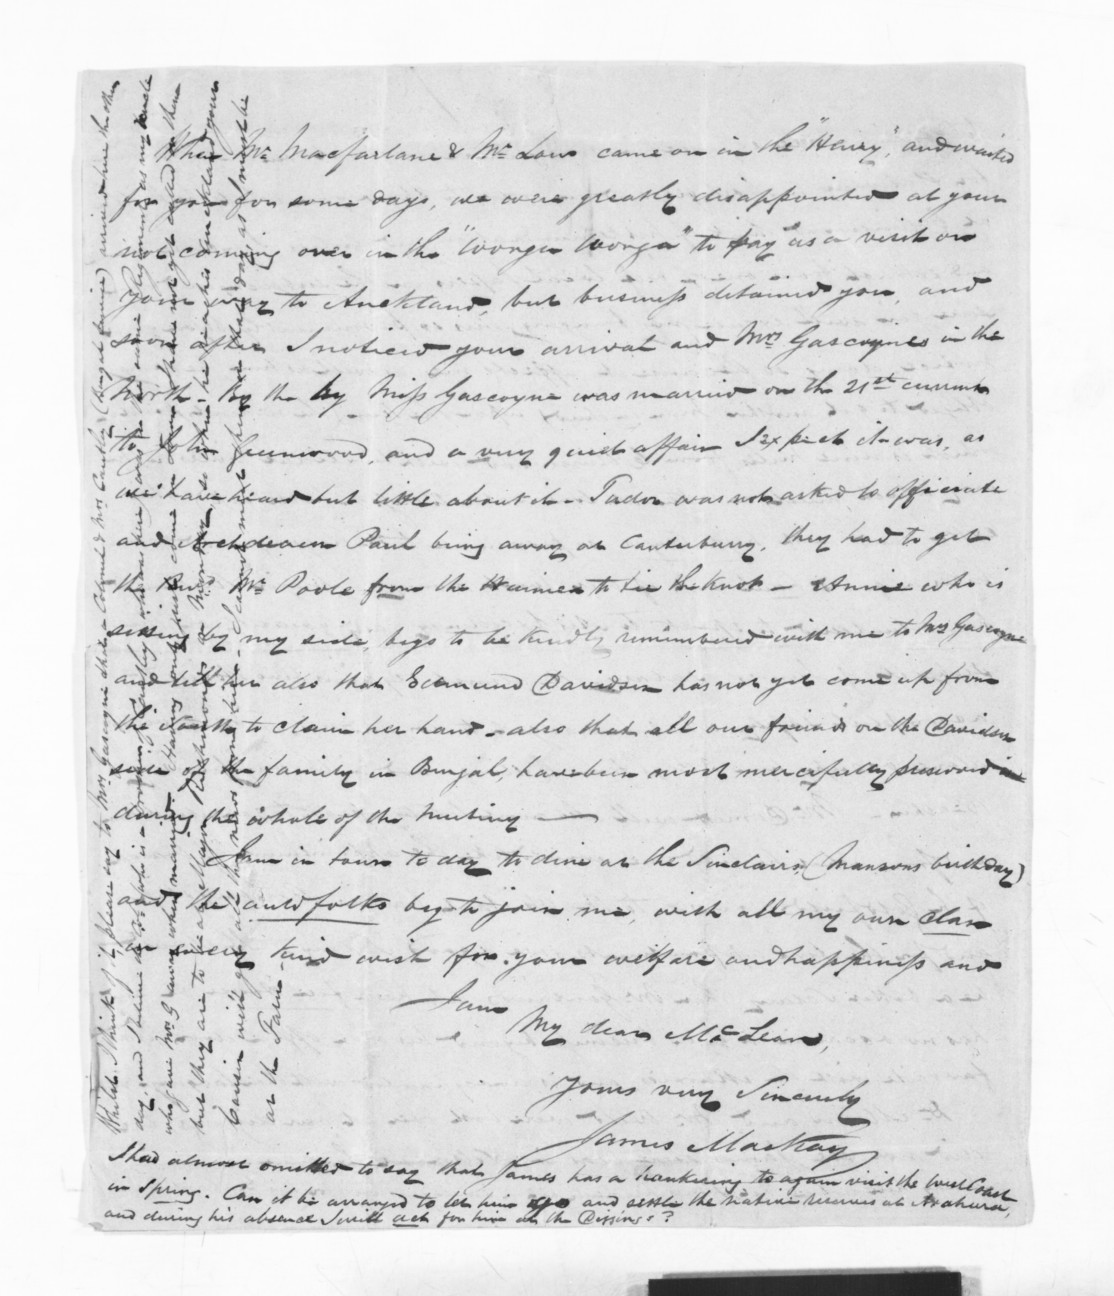 When Mr. Macfarlane & Mr. Law came on in the "Henry", and waited
for you for some days, we were greatly disappointed at your
not coming over in the "Wonga Wonga" to pay us a visit on
your way to Auckland, but business detained you, and
soon after I noticed your arrival and Mrs Gascoynes in the
North. By the by Miss Gascoyne was married on the 21st current
to John Greenwood, and a very quiet affair I expect it was, as
we have heard but little about it - Tudor was not asked to officiate
and Archdeacon Paul being away at Canterbury, they had to get
the Revd. Mr Poole from the Waimea to tie the Knot - Annie who is
sitting by my side, begs to be kindly remembered with me to Mrs Gascoyne
and tell her also that Edmund Davidson has not yet come up from
the South to claim her hand - also that all our friends on the Davidson
side of the family in Bengal, have been most mercifully preserved
during the whole of the Mutiny —
I am in town to day to dine at the Sinclairs (Mansons birthday)
and the auld folks beg to join me, with all my own clan
in every kind wish for your welfare and happiness and
I am
My dear McLean,
Yours very Sincerely
James Mackay
I had almost omitted to say that James has a hankering to again visit the West Coast
in Spring. Can it be arranged to let him go and settle the native reserves at Arahura,
and during his absence I will act for him at the Diggings?
Whilst I think of it please say to Mrs Gascoyne that a Colonel & Mrs
arrived here the other
day, and I dine
who is
who are Mrs G
but they are to
Richmond
his Auckland
Cousin will
at the Farm -